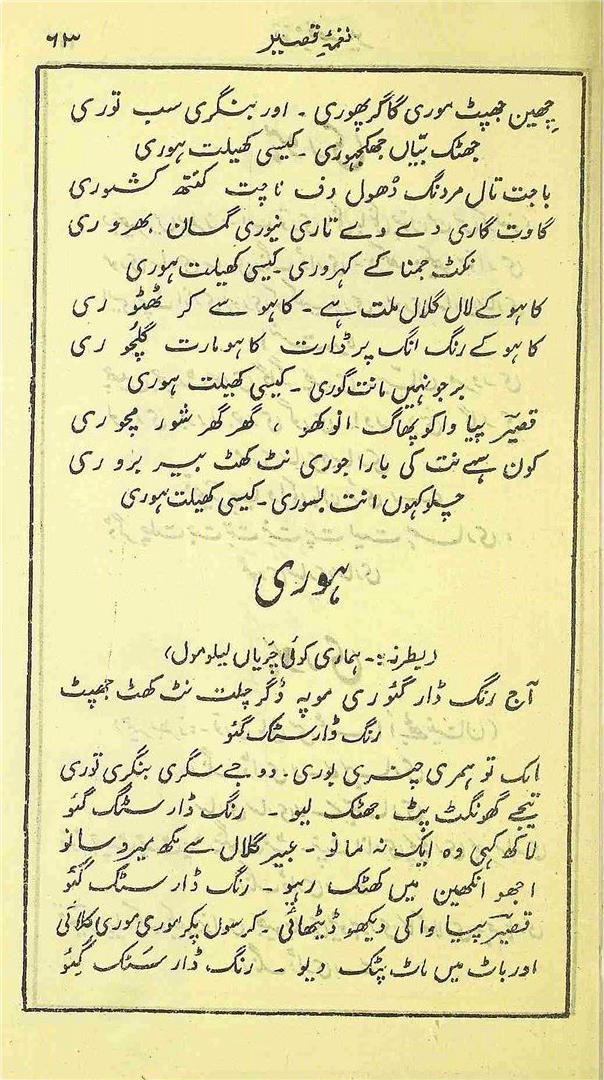 ۶۳ نغمۂ قصیر
چھین جھپٹ موری گاگر پھوری ۔ اور بنگری سب توری
جھٹک بیّاں جھکجھوری ۔ کیسی کھیلت ہوری
باجت تال مردنگ ڈھول دف ناچت کنتھ کشوری
گاوت گاری دے دے تاری نیوری گمان بھرو ری
نکٹ جمنا کے کہروری ۔ کیسی کھیلت ہوری
کاہو کے لال گلال ملت ہے ۔ کاہو سے کر ٹھٹو ری
کاہو کے رنگ انگ پر ڈارت کاہو مارت گلچو ری
برجو نہیں مانت گوری ۔ کیسی کھیلت ہوری
قصیرؔ پیا واکو پھاگ انوکھو ، گھر گھر شور مچو ری
کون سہے نت کی بارا جوری نٹ کھٹ بیر برو ری
چلو کہوں انت بسوری ۔ کیسی کھیلت ہوری
ہوری
(بطرز :۔ ہماری کوئی چریاں لیلو مول)
آج رنگ ڈار گئو ری موپہ ڈگر چلت نٹ کھٹ جھپٹ
رنگ ڈار سٹک گئو
اک تو ہمری چنری بوری ۔ دوجے سگری بنگری توری
تیجے گھونگٹ پٹ جھٹک لیو ۔ رنگ ڈار سٹک گئو
لاکھ کہی وہ ایک نہ مانو ۔ عبیر گلال سے مکھ میرو سانو
اجھو انکھین میں کھٹک رہیو ۔ رنگ ڈار سٹک گئو
قصیرؔ پیا واکی دیکھو ڈیٹھائی ۔ کر سوں پکر موری موری کلائی
اور باٹ میں ماٹ پٹک دیو ۔ رنگ ڈار سٹک گئو